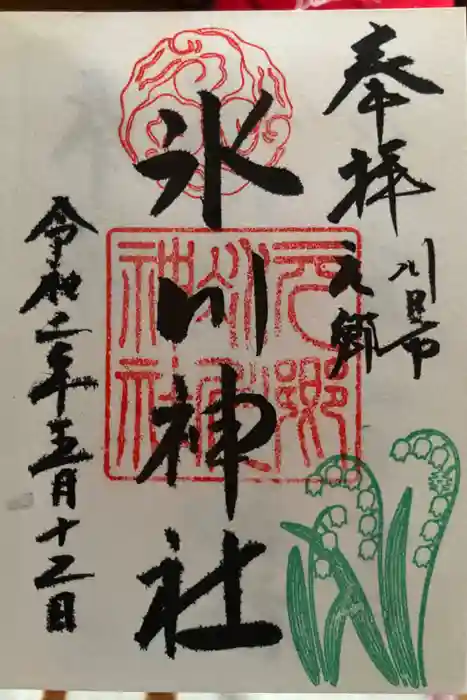 奉拝
川口市
元郷
氷川神社
令和二年五月十二日
元郷
神社